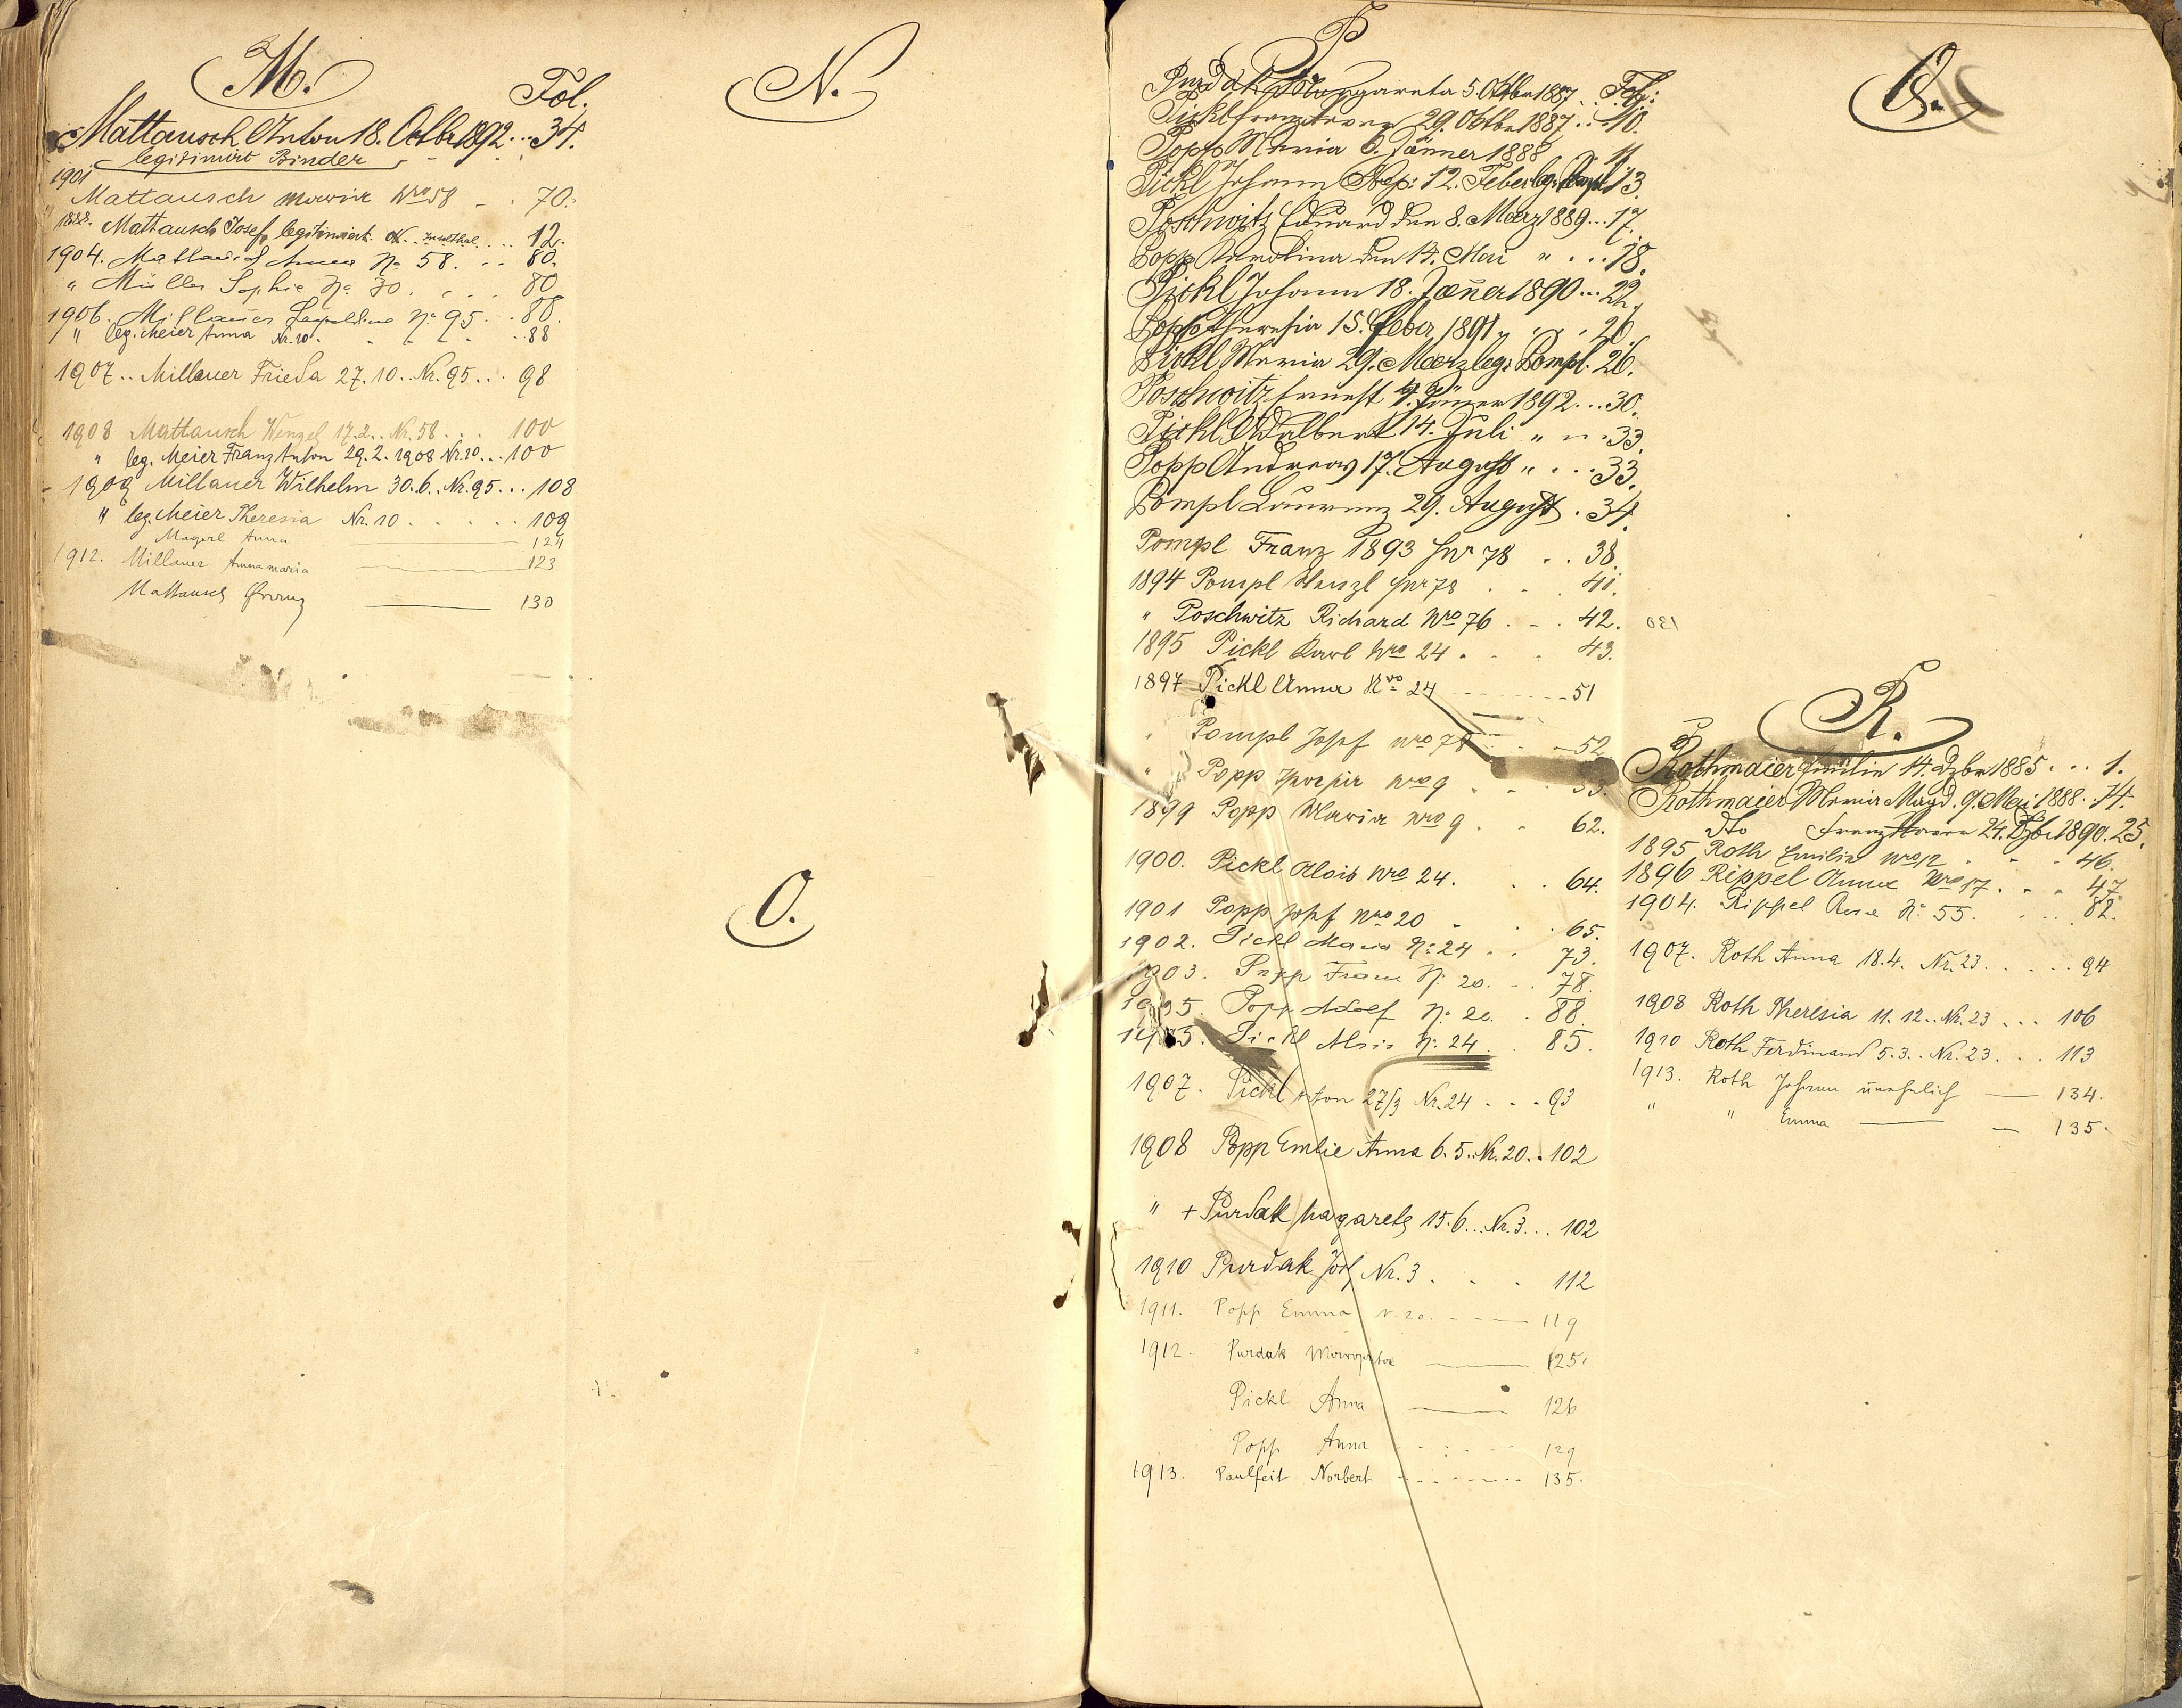 M.
Fol.
Mattausch Anton 18. Octbr 1892 ... 34.
legitimirt Binder
1901
Mattausch Maria Nro 58 - . 70.
1888. Mattausch Josef legitimirt N. ... 12.
1904. Mattausch Anna No 58. . . 80.
" Müller Sophie No 70. . . . 80
1906. Millauer Leopoldine No 95. . 88.
" leg. Meier Anna Nr. 10. - - - . 88
1907.. Millauer Frieda 27.10.. Nr. 95... 98
1908 Mattausch Wenzel 17.2.. Nr. 58 . . . 100
" leg. Meier Franz Anton 29.2.1908 Nr. 10... 100
- 1909 Millauer Wilhelm 30.6.. Nr. 95... 108
" leg. Meier Theresia Nr. 10 . . . . . 109
Magerl Anna 124
1912. Millauer Annamaria 123
Mattausch Franz 130
N.
O.
P
Purdak Margareta 5. Oktbr 1887 .. Fol:
Pickl Franz Xaver 29. Oktbr 1887 . . . 10.
Popp Maria 6. Jänner 1888 11
Pickl Johann Nep: 12. Feber leg: Pompl 13.
Poschwitz Eduard den 8. März 1889 ... 17.
Popp Karolina den 14. Mai " . . . 18.
Pickl Johann 18. Jäner 1890 ... 22.
Popp Theresia 15. Feber 1891 " . . . 26.
Pickl Maria 29. März leg: Pompl. 26.
Poschwitz Ernest 4. Jäner 1892 ... 30.
Pickl Adalbert 14. Juli " " . 33.
Popp Andreas 17. August " . . . 33.
Pompl Laurenz 29. August . 34.
Pompl Franz 1893 Nr 78 . . 38.
1894 Pompl Wenzl Nr 78 . . . 41.
" Poschwitz Richard Nro 76 . - . 42.
1895 Pickl Karl Nro 24 . . . 43.
1897 Pickl Anna Nro 24 - - - - - - - - 51
" Pompl Josef Nro 78 - - 52
" Popp Nro 9 . . . 53.
1899 Popp Maria Nro 9 . . 62.
1900. Pickl Alois Nro 24. . . 64.
1901 Popp Josef Nro 20 . . . 65.
1902. Pickl Maria No 24 . . 73.
1903. Popp Franz No 20. . . 78.
1905. Popp Adolf No 20. . 88.
1905. Pickl Alois No 24. . 85.
1907. Pickl Anton 27/3 Nr. 24 . . . 93
1908 Popp Emilie Anna 6.5.. Nr. 20.. 102
" + Purdak Margarete 15.6... Nr. 3... 102
1910 Purdak Josef Nr. 3 . . . 112
1911. Popp Emma N. 20. - - - 119
1912. Purdak Margareta 125.
Pickl Anna 126
Popp Anna - - - - 129
1913. Paulfeit Norbert - - - - - 135.
Q.
R.
Rothmaier Emilie 14. Dzbr 1885 . . . 1.
Rothmaier Maria Magd. 9. Mai 1888. 14.
dto Franz Xaver 24. Dzbr 1890. 25.
1895 Roth Emilie Nro 12 . . . 46.
1896 Rippel Anna Nro 17. . . 47.
1904. Rippel Rosa No 55. . . . 82.
1907. Roth Anna 18.4. Nr. 23. . . . . 94
1908 Roth Theresia 11.12.. Nr. 23 . . . 106
1910 Roth Ferdinand 5.3.. Nr. 23. . . 113
1913. Roth Johann unehelich 134.
" " Emma 135.